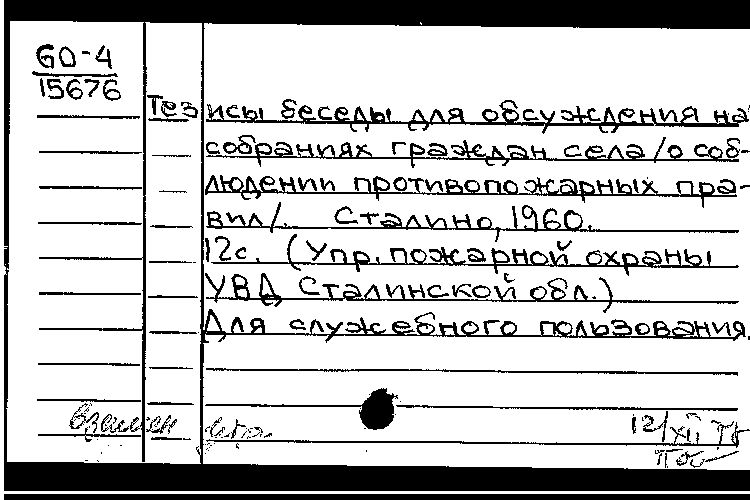 60-4
15676
Тезисы беседы для обсуждения на
собраниях граждан села /о соб-
людении противопожарных пра-
вил/. Сталино, 1960.
12с. (Упр. пожарной охраны
УВД Сталинской обл.)
Для служебного пользования.
взамен
12/XII